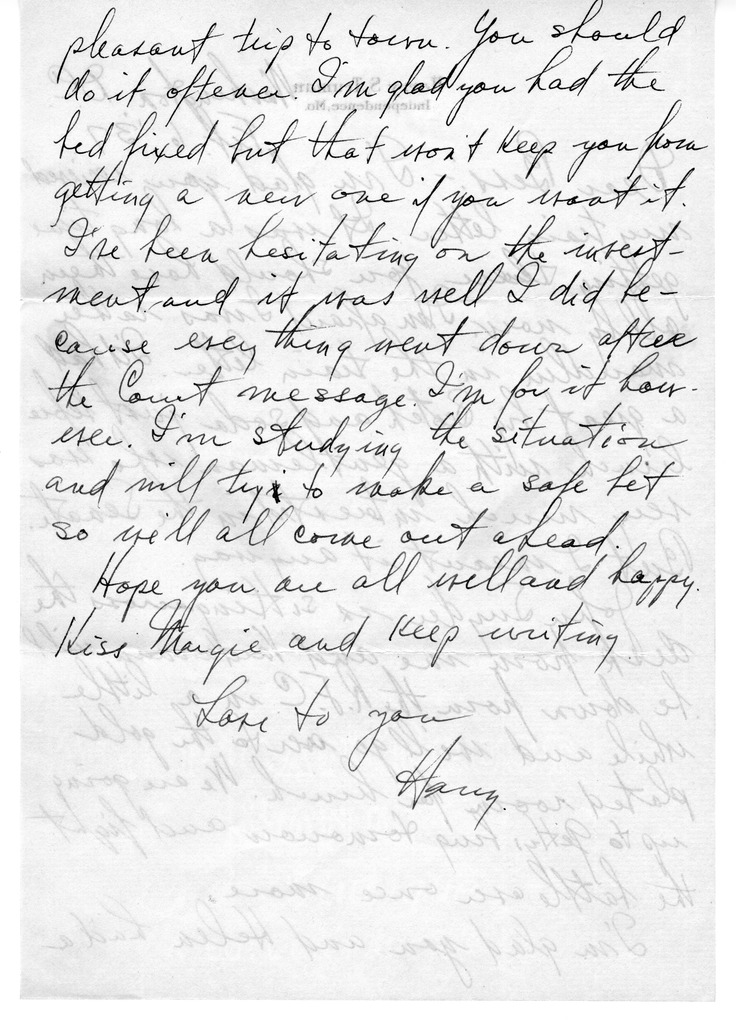 pleasant trip to town. You should
do it oftener. I'm glad you had the
bed fixed but that won't keep you from
getting a new one if you want it.
I've been hesitating on the invest-
ment and it was well I did be-
cause every thing went down after
the Court message. I'm for it how-
ever. I'm studying the situation
and will try to make a safe bet
so we'll all come out ahead.
Hope you are all well and happy.
Kiss Margie and keep writing.
Love to you
Harry.